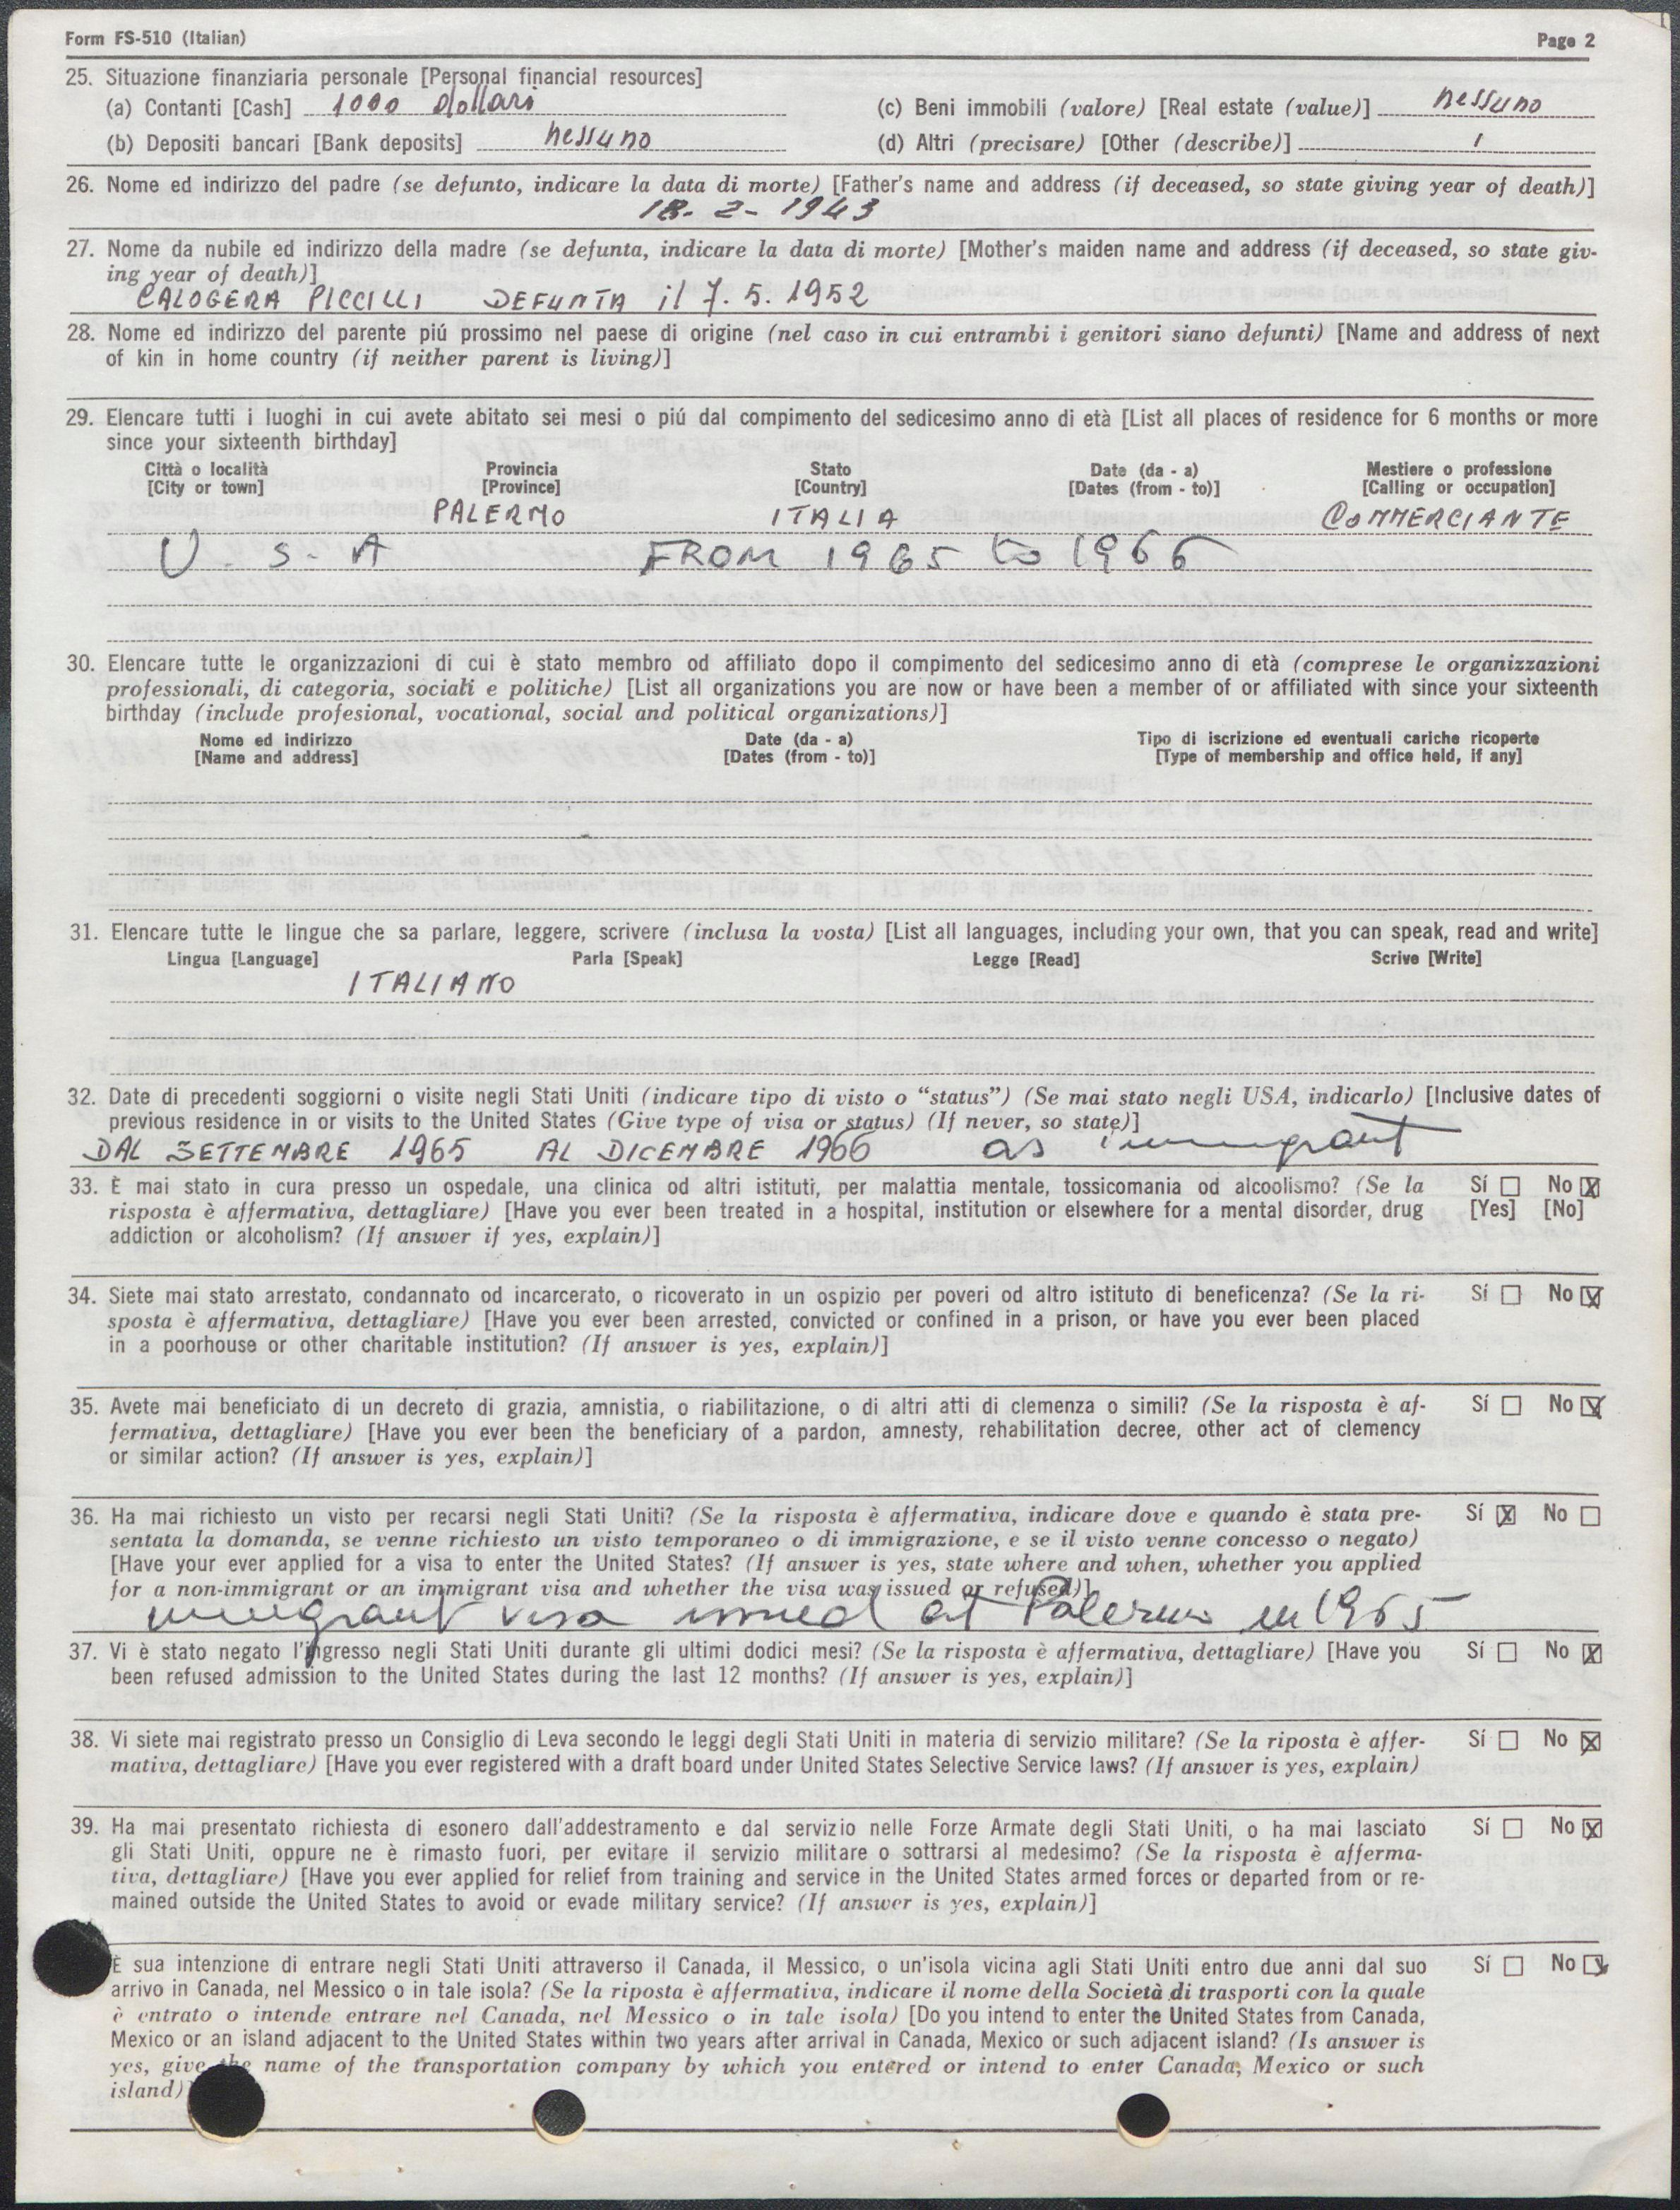 Form FS-510 (Italian) Page 2
25. Situazione finanziaria personale [Personal financial resources]
(a) Contanti [Cash] 1000 dollari (c) Beni immobili (valore) [Real estate (value)] nessuno
(b) Depositi bancari [Bank deposits] nessuno (d) Altri (precisare) [Other (describe)] /
26. Nome ed indirizzo del padre (se defunto, indicare la data di morte) [Father's name and address (if deceased, so state giving year of death)]
18-2-1943
27. Nome da nubile ed indirizzo della madre (se defunta, indicare la data di morte) [Mother's maiden name and address (if deceased, so state giv-
ing year of death)]
CALOGERA PICCILLI DEFUNTA il 7.5.1952
28. Nome ed indirizzo del parente piú prossimo nel paese di origine (nel caso in cui entrambi i genitori siano defunti) [Name and address of next
of kin in home country (if neither parent is living)]
29. Elencare tutti i luoghi in cui avete abitato sei mesi o piú dal compimento del sedicesimo anno di età [List all places of residence for 6 months or more
since your sixteenth birthday]
Città o località Provincia Stato Date (da - a) Mestiere o professione
[City or town] [Province] [Country] [Dates (from - to)] [Calling or occupation]
PALERMO ITALIA COMMERCIANTE
U. S. A FROM 1965 to 1966
30. Elencare tutte le organizzazioni di cui è stato membro od affiliato dopo il compimento del sedicesimo anno di età (comprese le organizzazioni
professionali, di categoria, sociali e politiche) [List all organizations you are now or have been a member of or affiliated with since your sixteenth
birthday (include profesional, vocational, social and political organizations)]
Nome ed indirizzo Date (da - a) Tipo di iscrizione ed eventuali cariche ricoperte
[Name and address] [Dates (from - to)] [Type of membership and office held, if any]
31. Elencare tutte le lingue che sa parlare, leggere, scrivere (inclusa la vosta) [List all languages, including your own, that you can speak, read and write]
Lingua [Language] Parla [Speak] Legge [Read] Scrive [Write]
ITALIANO
32. Date di precedenti soggiorni o visite negli Stati Uniti (indicare tipo di visto o “status”) (Se mai stato negli USA, indicarlo) [Inclusive dates of
previous residence in or visits to the United States (Give type of visa or status) (If never, so state)]
DAL SETTEMBRE 1965 AL DICEMBRE 1966 as immigrant
33. È mai stato in cura presso un ospedale, una clinica od altri istituti, per malattia mentale, tossicomania od alcoolismo? (Se la Sí ☐ No ☒
risposta è affermativa, dettagliare) [Have you ever been treated in a hospital, institution or elsewhere for a mental disorder, drug [Yes] [No]
addiction or alcoholism? (If answer if yes, explain)]
34. Siete mai stato arrestato, condannato od incarcerato, o ricoverato in un ospizio per poveri od altro istituto di beneficenza? (Se la ri- Sí ☐ No ☒
sposta è affermativa, dettagliare) [Have you ever been arrested, convicted or confined in a prison, or have you ever been placed
in a poorhouse or other charitable institution? (If answer is yes, explain)]
35. Avete mai beneficiato di un decreto di grazia, amnistia, o riabilitazione, o di altri atti di clemenza o simili? (Se la risposta è af- Sí ☐ No ☒
fermativa, dettagliare) [Have you ever been the beneficiary of a pardon, amnesty, rehabilitation decree, other act of clemency
or similar action? (If answer is yes, explain)]
36. Ha mai richiesto un visto per recarsi negli Stati Uniti? (Se la risposta è affermativa, indicare dove e quando è stata pre- Sí ☒ No ☐
sentata la domanda, se venne richiesto un visto temporaneo o di immigrazione, e se il visto venne concesso o negato)
[Have your ever applied for a visa to enter the United States? (If answer is yes, state where and when, whether you applied
for a non-immigrant or an immigrant visa and whether the visa was issued or refused)]
immigrant visa issued at Palermo in 1965
37. Vi è stato negato l'ingresso negli Stati Uniti durante gli ultimi dodici mesi? (Se la risposta è affermativa, dettagliare) [Have you Sí ☐ No ☒
been refused admission to the United States during the last 12 months? (If answer is yes, explain)]
38. Vi siete mai registrato presso un Consiglio di Leva secondo le leggi degli Stati Uniti in materia di servizio militare? (Se la riposta è affer- Sí ☐ No ☒
mativa, dettagliare) [Have you ever registered with a draft board under United States Selective Service laws? (If answer is yes, explain)
39. Ha mai presentato richiesta di esonero dall'addestramento e dal servizio nelle Forze Armate degli Stati Uniti, o ha mai lasciato Sí ☐ No ☒
gli Stati Uniti, oppure ne è rimasto fuori, per evitare il servizio militare o sottrarsi al medesimo? (Se la risposta è afferma-
tiva, dettagliare) [Have you ever applied for relief from training and service in the United States armed forces or departed from or re-
mained outside the United States to avoid or evade military service? (If answer is yes, explain)]
È sua intenzione di entrare negli Stati Uniti attraverso il Canada, il Messico, o un'isola vicina agli Stati Uniti entro due anni dal suo Sí ☐ No ☒
arrivo in Canada, nel Messico o in tale isola? (Se la riposta è affermativa, indicare il nome della Società di trasporti con la quale
è entrato o intende entrare nel Canada, nel Messico o in tale isola) [Do you intend to enter the United States from Canada,
Mexico or an island adjacent to the United States within two years after arrival in Canada, Mexico or such adjacent island? (Is answer is
yes, give the name of the transportation company by which you entered or intend to enter Canada, Mexico or such
island)]